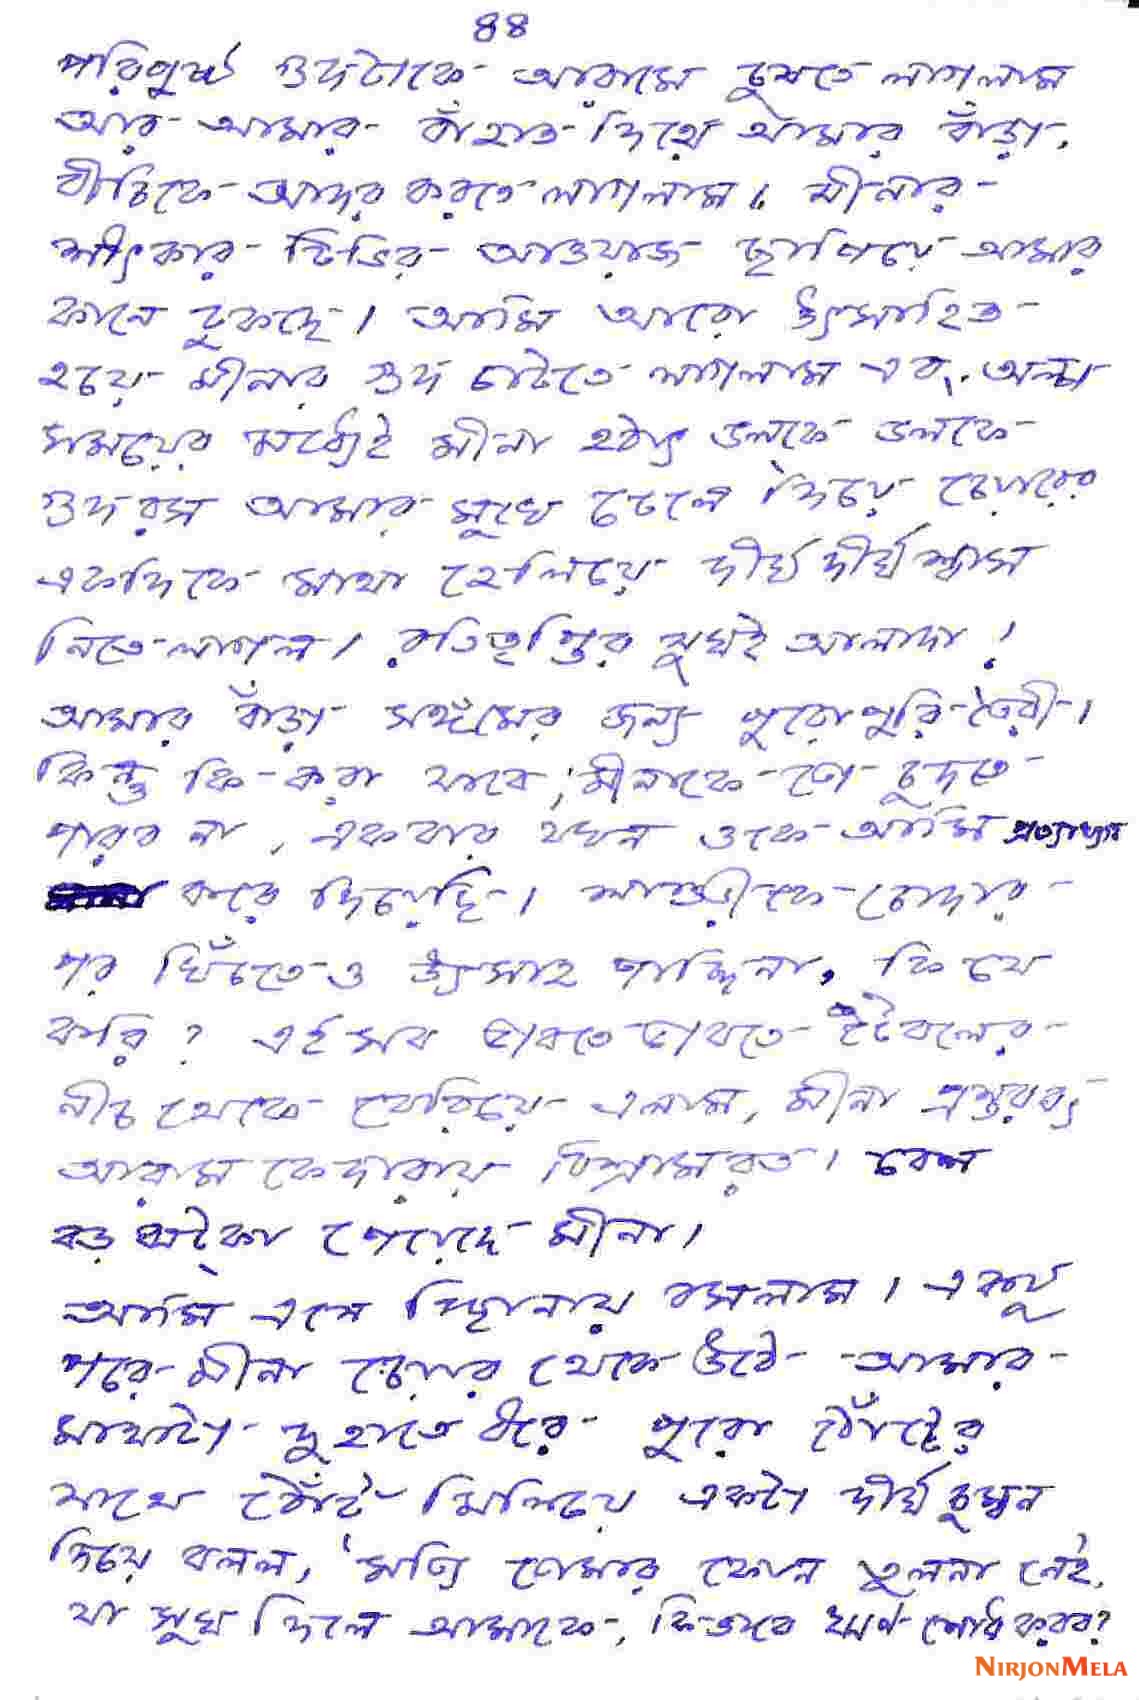 ৪৪
পরিপুষ্ট গুদটাকে আরামে চুষতে লাগলাম
আর আমার বাঁহাত দিয়ে আমার বাঁড়া,
বীচিকে আদর করতে লাগলাম। মীনার
শীৎকার টিভির আওয়াজ ছাপিয়ে আমার
কানে ঢুকছে। আমি আরো উৎসাহিত
হয়ে মীনার গুদ চাটতে লাগলাম এবং অল্প
সময়ের মধ্যেই মীনা হঠাৎ ভলকে ভলকে
গুদরস আমার মুখে ঢেলে দিয়ে চেয়ারের
একদিকে মাথা হেলিয়ে দীর্ঘ দীর্ঘশ্বাস
নিতে লাগল। রতিতৃপ্তির সুখই আলাদা!
আমার বাঁড়া সঙ্গমের জন্য পুরোপুরি তৈরী।
কিন্তু কি করা যাবে, মীনাকে তো চুদতে
পারব না, একবার যখন ওকে আমি প্রত্যাখ্যান
করে দিয়েছি। শাশুড়ীকে চোদার
পর খিঁচতেও উৎসাহ পাচ্ছিনা, কি যে
করি? এইসব ভাবতে ভাবতে টেবিলের
নীচ থেকে বেরিয়ে এলাম, মীনা
আরাম কেদারায় বিশ্রামরত। বেশ
বড় ঝটকা পেয়েছে মীনা।
আমি এসে বিছানায় বসলাম। একটু
পরে মীনা চেয়ার থেকে উঠে আমার
মাথাটা দুহাতে ধরে পুরো ঠোঁটের
সাথে ঠোঁট মিলিয়ে একটা দীর্ঘ চুম্বন
দিয়ে বলল, 'সত্যি তোমার কোন তুলনা নেই,
যা সুখ দিলে আমাকে, কিভাবে ঋণ শোধ করব?
NIRJONMELA